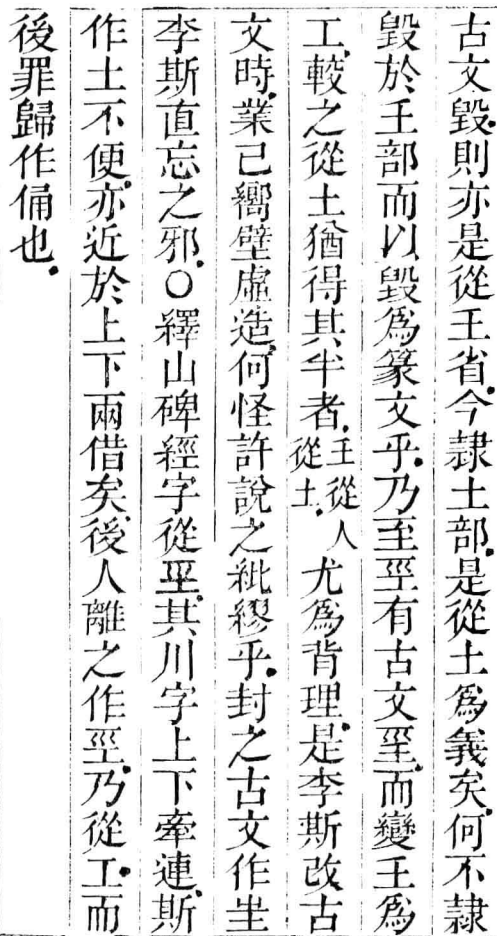 古文毀。則亦是從王省。今隸土部。是從土爲義矣。何不隸
毀於王部而以毀爲篆文乎。乃至巠有古文𢀖。而變王爲
工。較之從土猶得其半者。王從人從土。尤爲背理。是李斯改古
文時。業已嚮壁虛造。何怪許說之紕繆乎。封之古文作㞷
李斯直忘之邪。○繹山碑經字從𢀖。其川字上下牽連。斯
作土不便。亦近於上下兩借矣。後人離之作巠。乃從工。而
後罪歸作俑也。